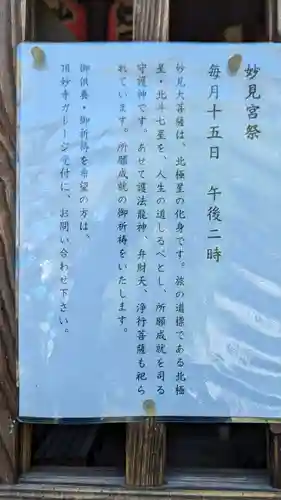 妙見宮祭
毎月十五日　午後二時
妙見大菩薩は、北極星の化身です。旅の道標である北極
星・北斗七星を、人生の道しるべとし、所願成就を司る
守護神です。あせて護法龍神、弁財天、浄行菩薩も祀ら
れています。所願成就の御祈祷をいたします。
御供養・御祈祷を希望の方は、
頂妙寺ガレージ受付に、お問い合わせ下さい。